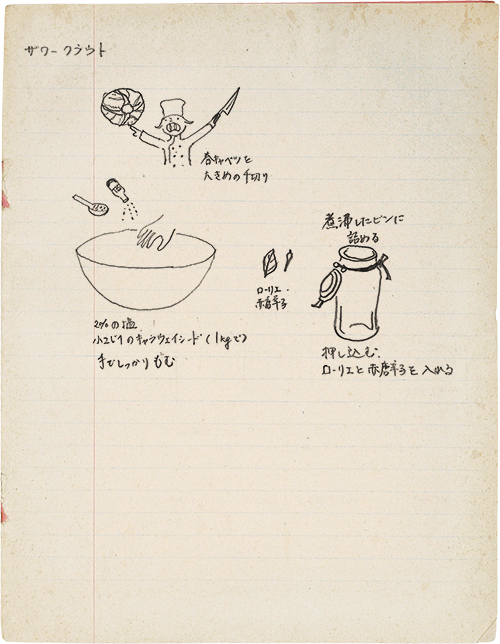 ザワークラウト
春キャベツを
大きめの千切り
2%の塩
小さじ1のキャラウェイシード(1kgで)
手でしっかりもむ
ローリエ・
赤唐辛子
煮沸したビンに
詰める
押し込む.
ローリエと赤唐辛子を入れる